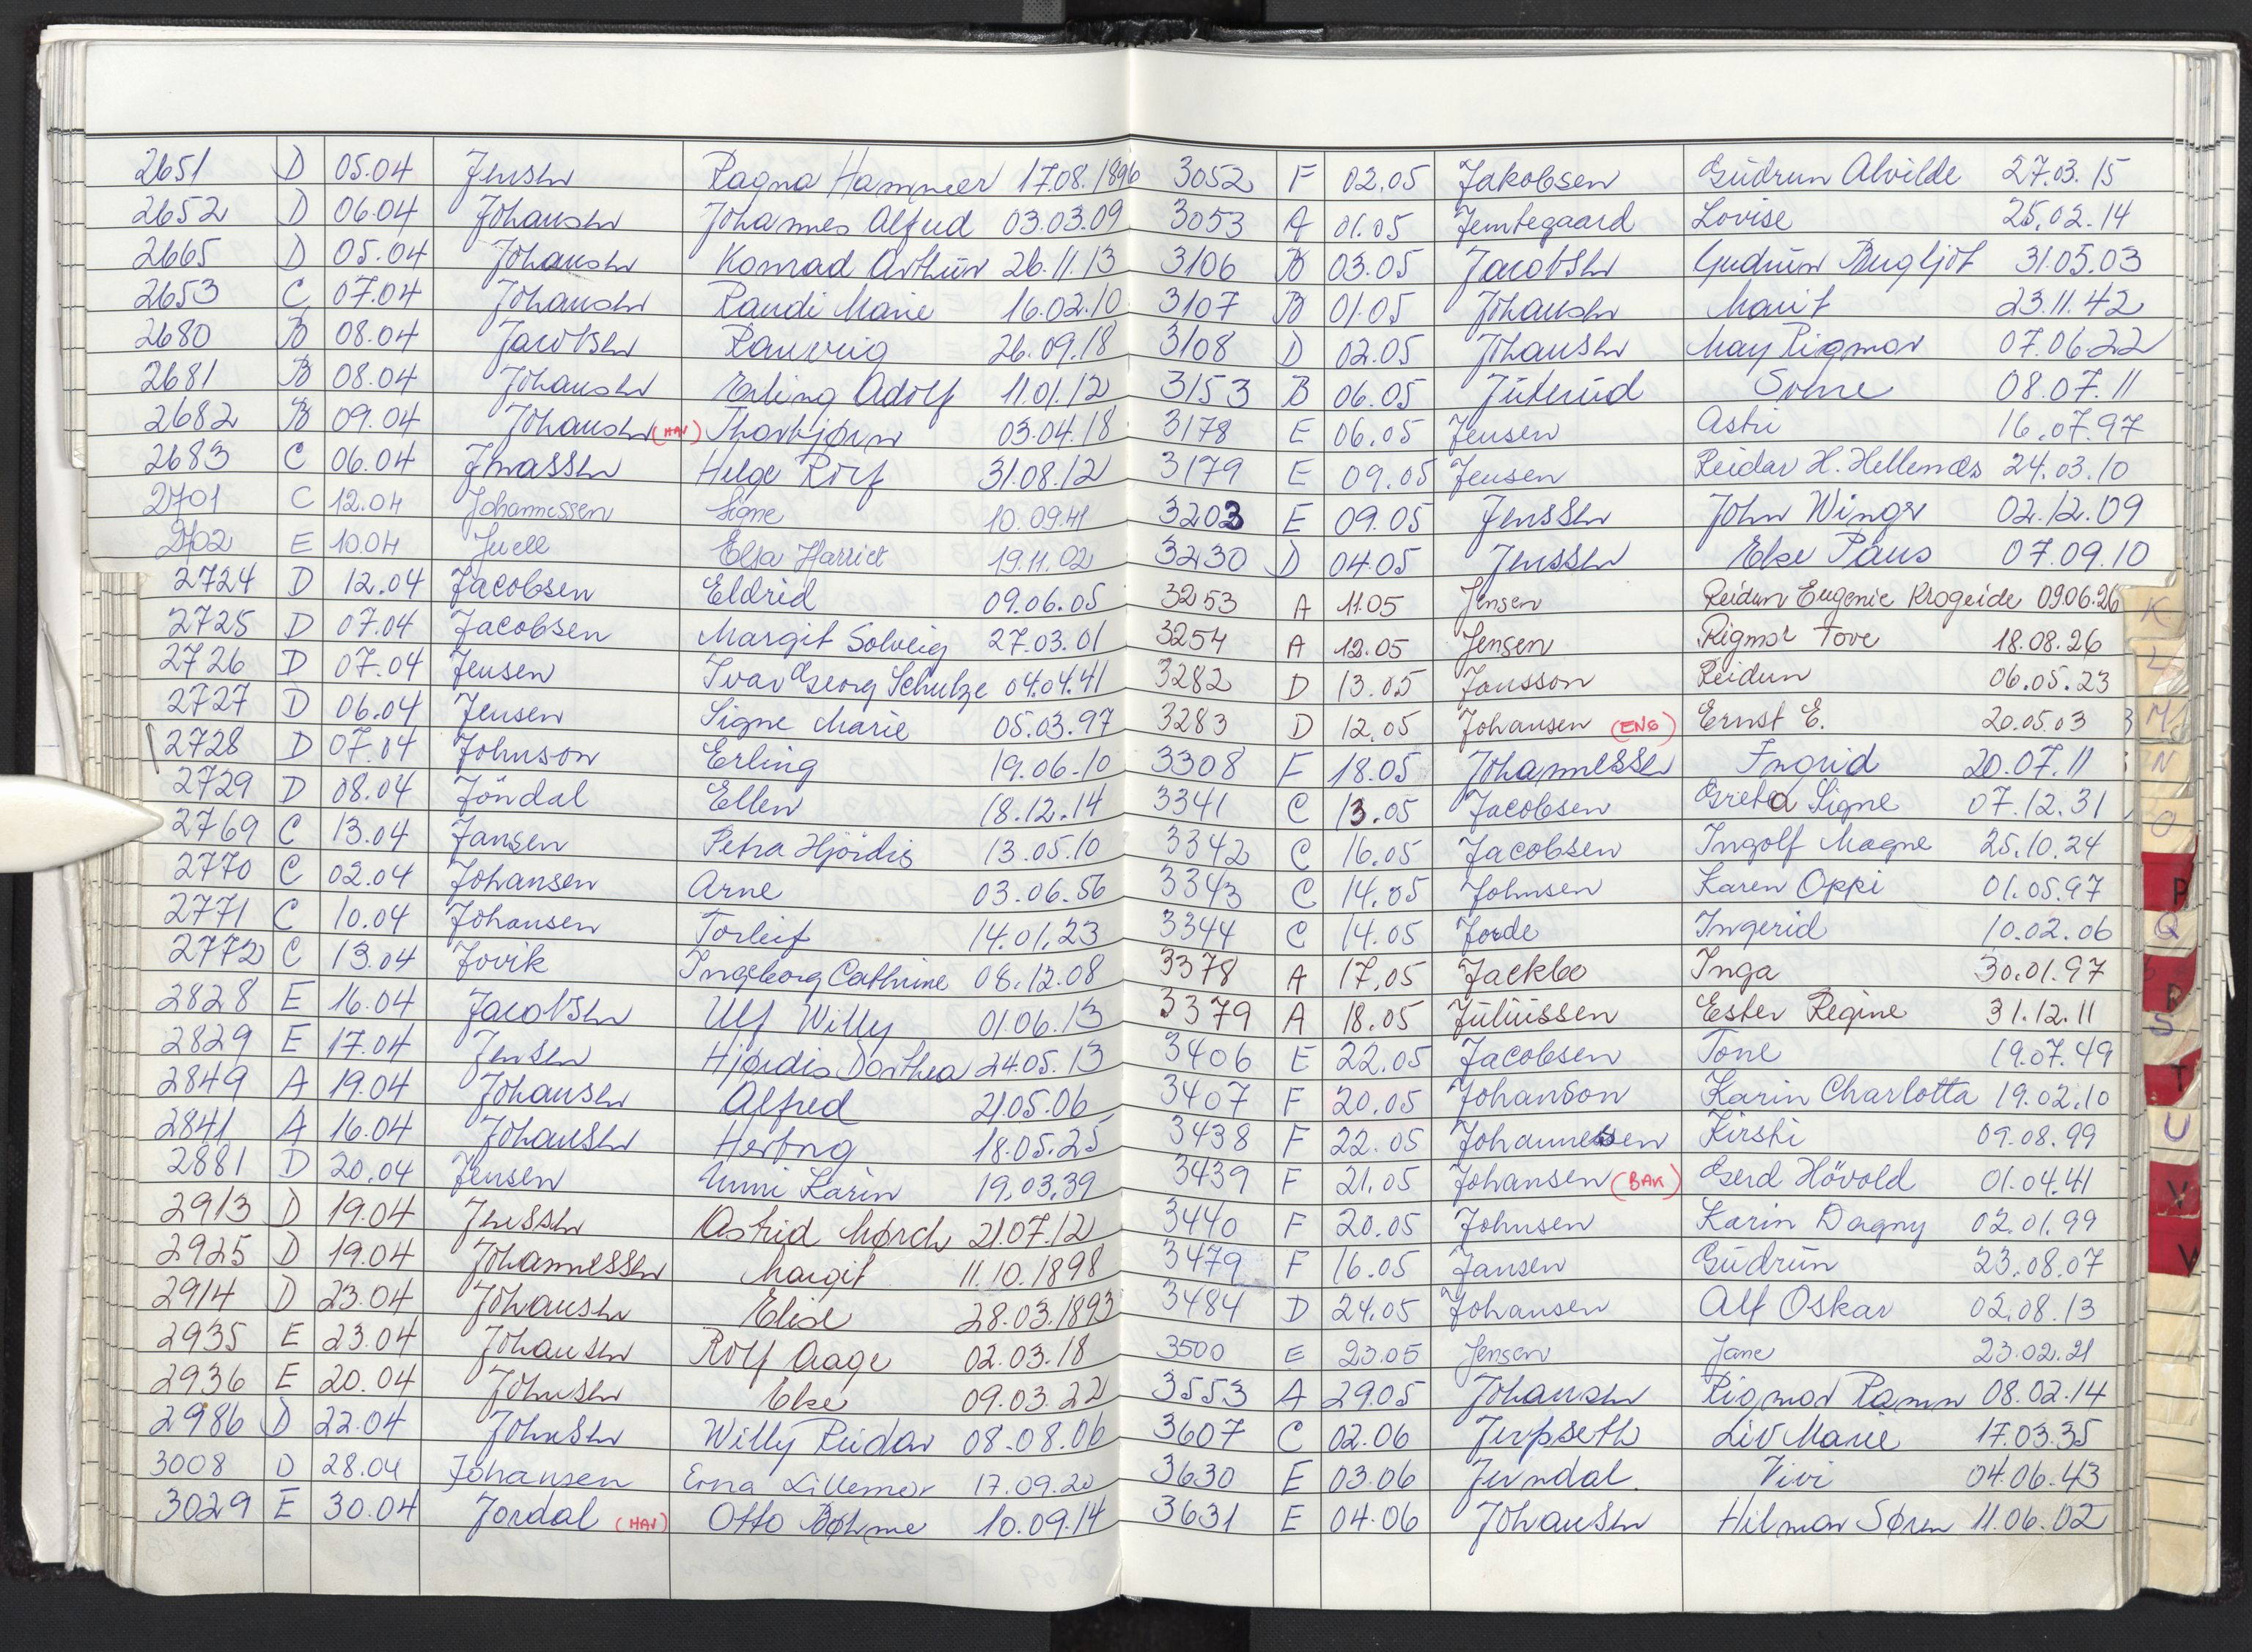 2651 D 05.04 Jensen Ragna Hammer 17.08.1896
2652 D 06.04 Johansen Johannes Alfred 03.03.09
2665 D 05.04 Johansen Konrad Arthur 26.11.13
2653 C 07.04 Johansen Randi Marie 16.02.10
2680 B 08.04 Jacobsen Ranveig 26.09.18
2681 B 08.04 Johansen Erling Adolf 11.01.12
2682 B 09.04 Johansen (HAV) Thorbjørn 03.04.18
2683 C 06.04 Jonassen Helge Rolf 31.08.12
2701 C 12.04 Johannessen Signe 10.09.41
2702 E 10.04 Juell Elsa Harriet 19.11.02
2724 D 12.04 Jacobsen Eldrid 09.06.05
2725 D 07.04 Jacobsen Margit Solveig 27.03.01
2726 D 07.04 Jensen Ivar Georg Schulze 04.04.41
2727 D 06.04 Jensen Signe Marie 05.03.97
2728 D 07.04 Johnson Erling 19.06.10
2729 D 08.04 Jöndal Ellen 18.12.14
2769 C 13.04 Jansen Petra Hjördis 13.05.10
2770 C 02.04 Johansen Arne 03.06.56
2771 C 10.04 Johansen Torleif 14.01.23
2772 C 13.04 Jovik Ingeborg Cathrine 08.12.08
2828 E 16.04 Jacobsen Ulf Willy 01.06.13
2829 E 17.04 Jensen Hjørdis Dorthea 24.05.13
2849 A 19.04 Johansen Alfred 21.05.06
2841 A 16.04 Johansen Herbrog 18.05.25
2881 D 20.04 Jensen Unni Karin 19.03.39
2913 D 19.04 Jenssen Astrid Mørch 21.07.12
2925 D 19.04 Johannessen Margit 11.10.1898
2914 D 23.04 Johansen Elise 28.03.1893
2935 E 23.04 Johansen Rolf Aage 02.03.18
2936 E 20.04 Johnsen Else 09.03.22
2986 D 22.04 Johnsen Willy Reidar 08.08.06
3008 D 28.04 Johansen Erna Lillemor 17.09.20
3029 E 30.04 Jordal (HAV) Otto Bøhme 10.09.14
3052 F 02.05 Jakobsen Gudrun Alvilde 27.03.15
3053 A 01.05 Jemtegaard Lovise 25.02.14
3106 B 03.05 Jacobsen Gudrun Bergljot 31.05.03
3107 B 01.05 Johansen Marit 23.11.42
3108 D 02.05 Johansen May Rigmor 07.06.22
3153 B 06.05 Juterud Solvei 08.07.11
3178 E 06.05 Jensen Astri 16.07.97
3179 E 09.05 Jensen Reidar H. Hellenæs 24.03.10
3203 E 09.05 Jenssen John Winge 02.12.09
3230 D 04.05 Jenssen Else Paus 07.09.10
3253 A 11.05 Jensen Reidun Eugenie Krogeide 09.06.26
3254 A 12.05 Jensen Rigmor Tove 18.08.26
3282 D 13.05 Jonsson Reidun 06.05.23
3283 D 12.05 Johansen (ENG) Ernst E. 20.05.03
3308 F 18.05 Johannessen Ingrid 20.07.11
3341 C 13.05 Jacobsen Grieta Signe 07.12.31
3342 C 16.05 Jacobsen Ingolf Magne 25.10.24
3343 C 14.05 Johnsen Karen Oppi 01.05.97
3344 C 14.05 Jorde Ingerid 10.02.06
3378 A 17.05 Jackbo Inga 30.01.97
3379 A 18.05 Juliussen Ester Regine 31.12.11
3406 E 22.05 Jacobsen Tone 19.07.49
3407 F 20.05 Johanson Karin Charlotta 19.02.10
3438 F 22.05 Johannessen Kirsti 09.08.99
3439 F 21.05 Johansen (BAK) Gerd Hövold 01.04.41
3440 F 20.05 Johnsen Karin Dagny 02.01.99
3479 F 16.05 Jansen Gudrun 23.08.07
3484 D 24.05 Johansen Alf Oskar 02.08.13
3500 E 23.05 Jensen Jane 23.02.21
3553 A 29.05 Johansen Rigmor Ramm 08.02.14
3607 C 02.06 Jerpseth Liv Marie 17.03.35
3630 E 03.06 Jerndal Vivi 04.06.43
3631 E 04.06 Johansen Hilmar Søren 11.06.02
K
L
M
N
O
P
Q
R
S
T
U
V